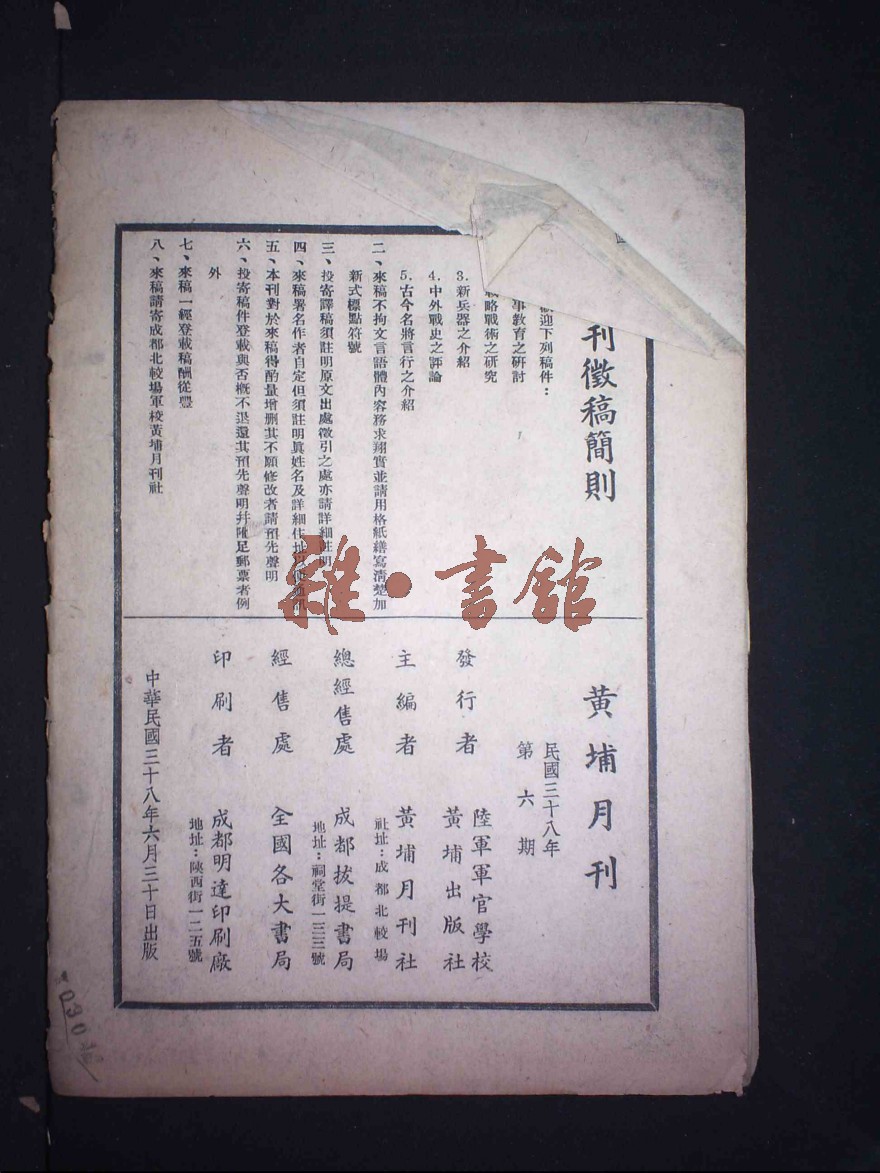 刊徵稿簡則
迎下列稿件：
事教育之研討
戰略戰術之研究
3.新兵器之介紹
4.中外戰史之評論
5.古今名將言行之介紹
二、來稿不拘文言語體內容務求翔實並請用格紙繕寫清楚加
新式標點符號
三、投寄譯稿須註明原文出處徵引之處亦請詳細註明
四、來稿署名作者自定但須註明眞姓名及詳細住址
五、本刊對於來稿得酌量增删其不願修改者請預先聲明
六、投寄稿件登載與否概不退還其預先聲明幷附足郵票者例
外
七、來稿一經登載稿酬從豐
八、來稿請寄成都北較場軍校黃埔月刊社
黃埔月刊
民國三十八年
第六期
發行者
陸軍軍官學校
黃埔出版社
主編者 黃埔月刊社
社址：成都北較場
總經售處 成都拔提書局
地址：祠堂街一三三號
經售處 全國各大書局
印刷者 成都明達印刷廠
地址：陝西街一二五號
中華民國三十八年六月三十日出版
雜·書館
030